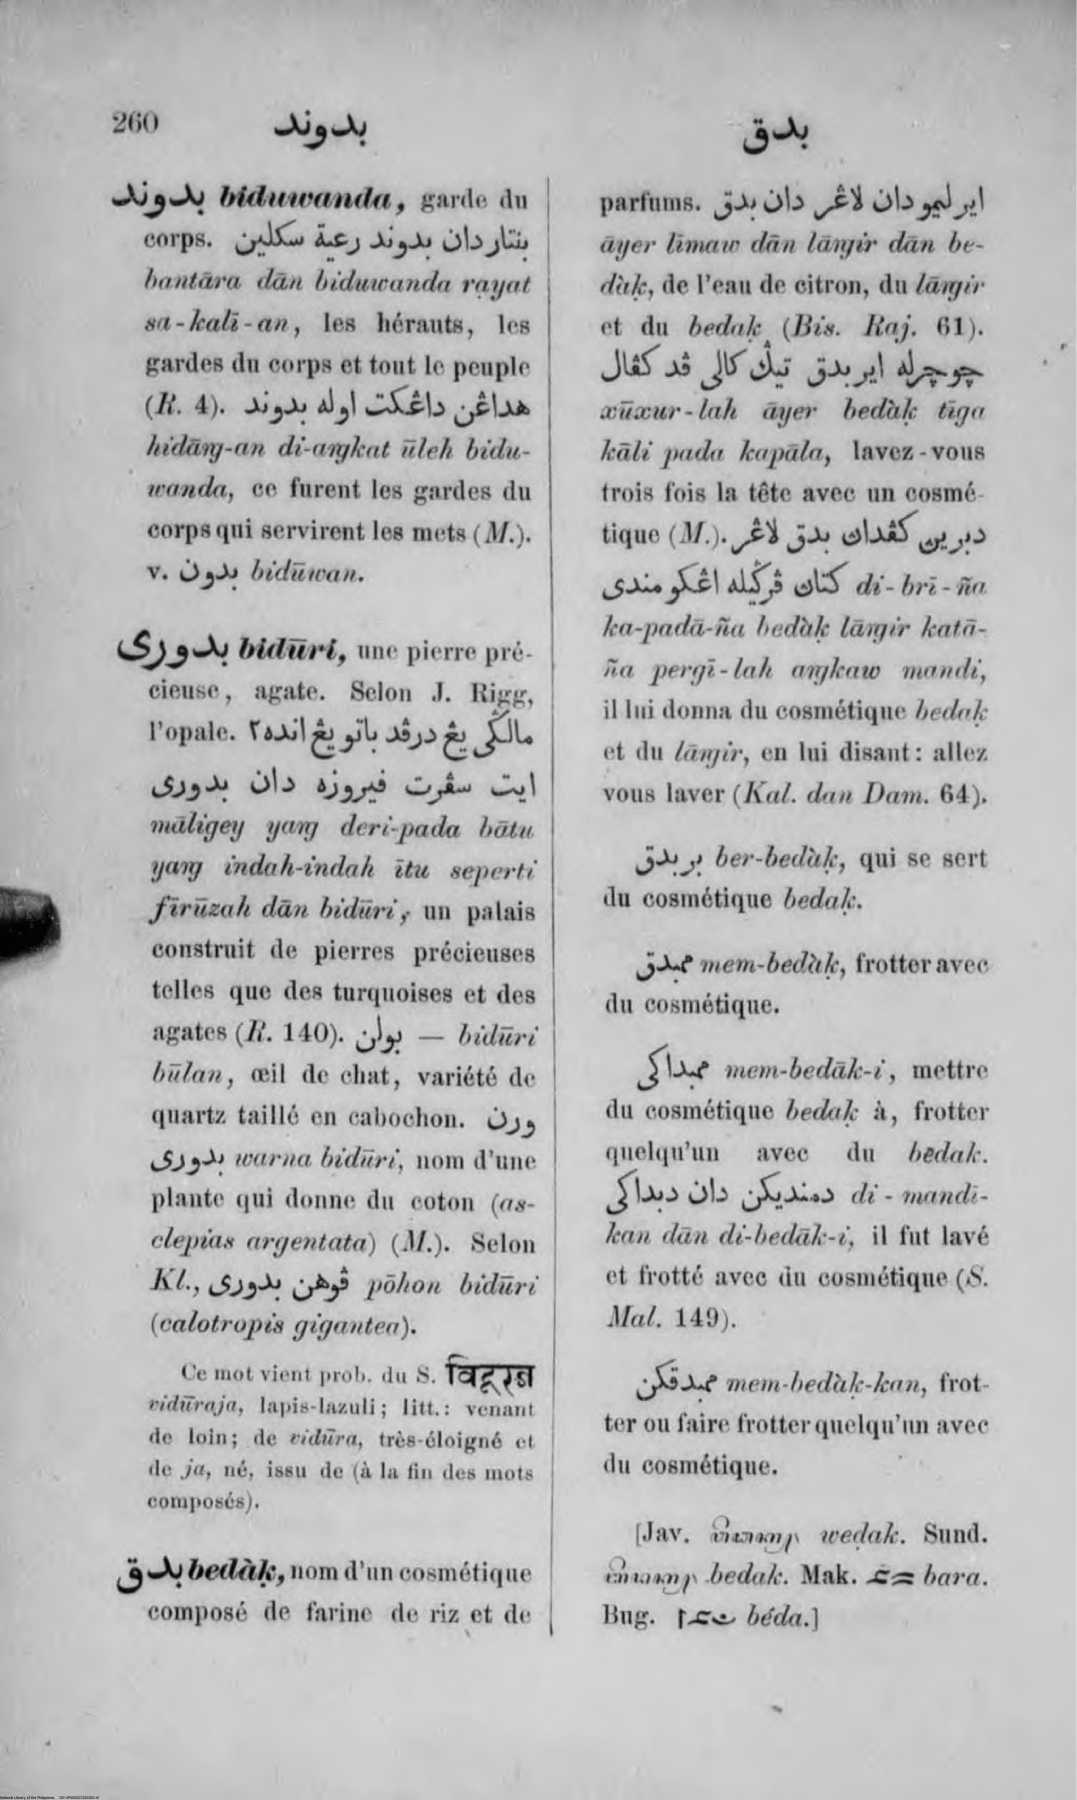 260
بدوند
بدق
بدوند biduwanda, garde du
corps. بنتار دان بدوند رعية سكلين
bantāra dān biduwanda rayat
sa-kalī-an, les hérauts, les
gardes du corps et tout le peuple
(R. 4). هداڠن داڠكت اوله بدوند
hidāng-an di-angkat ūleh bidu-
wanda, ce furent les gardes du
corps qui servirent les mets (M.).
v. بدون bidūwan.
بدورى bidūri, une pierre pré-
cieuse, agate. Selon J. Rigg,
l'opale. مالڬى يڠ درڤد باتو يڠ انده٢
ايت سڤرت فيروزه دان بدورى
māligey yang deri-pada bātu
yang indah-indah ītu seperti
fīrūzah dān bidūri, un palais
construit de pierres précieuses
telles que des turquoises et des
agates (R. 140). بولن — bidūri
būlan, œil de chat, variété de
quartz taillé en cabochon. ورن
بدورى warna bidūri, nom d'une
plante qui donne du coton (as-
clepias argentata) (M.). Selon
Kl., ڤوهن بدورى pōhon bidūri
(calotropis gigantea).
Ce mot vient prob. du S.
vidūraja, lapis-lazuli; litt.: venant
de loin; de vidūra, très-éloigné et
de ja, né, issu de (à la fin des mots
composés).
بدق bedàḳ, nom d'un cosmétique
composé de farine de riz et de
parfums. اير ليمو دان لاڠر دان بدق
āyer līmaw dān lāngir dān be-
dàḳ, de l'eau de citron, du lāngir
et du bedaḳ (Bis. Raj. 61).
چوچرله اير بدق تيڬ كالى ڤد كڤال
xūxur-lah āyer bedàḳ tīga
kāli pada kapāla, lavez-vous
trois fois la tête avec un cosmé-
tique (M.). دبرين كڤدان بدق لاڠر
كتان ڤرڬيله اڠكو مندى di-brī-ña
ka-padā-ña bedàḳ lāngir katā-
ña pergī-lah angkaw mandi,
il lui donna du cosmétique bedaḳ
et du lāngir, en lui disant: allez
vous laver (Kal. dan Dam. 64).
بربدق ber-bedàḳ, qui se sert
du cosmétique bedaḳ.
ممبدق mem-bedàḳ, frotter avec
du cosmétique.
ممبداكى mem-bedāk-i, mettre
du cosmétique bedaḳ à, frotter
quelqu'un avec du bedak.
دمنديكن دان دبداكى di-mandi-
kan dān di-bedāk-i, il fut lavé
et frotté avec du cosmétique (S.
Mal. 149).
ممبدقكن mem-bedàḳ-kan, frot-
ter ou faire frotter quelqu'un avec
du cosmétique.
[Jav. weḍak. Sund.
bedak. Mak. bara.
Bug. béda.]